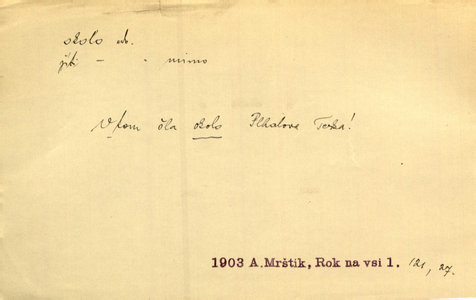 okolo adv.
jíti – " mimo
V tom šla okolo Plkalova Terka!
1903 A. Mrštík, Rok na vsi 1. 121, 27.